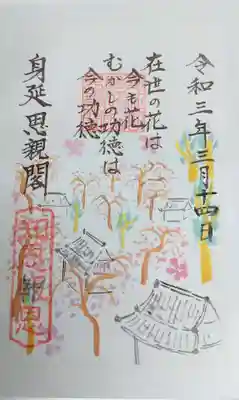 令和三年三月十四日
在世の花は
今も花
むかしの功徳は
今の功徳
身延思親閣
知恩報恩